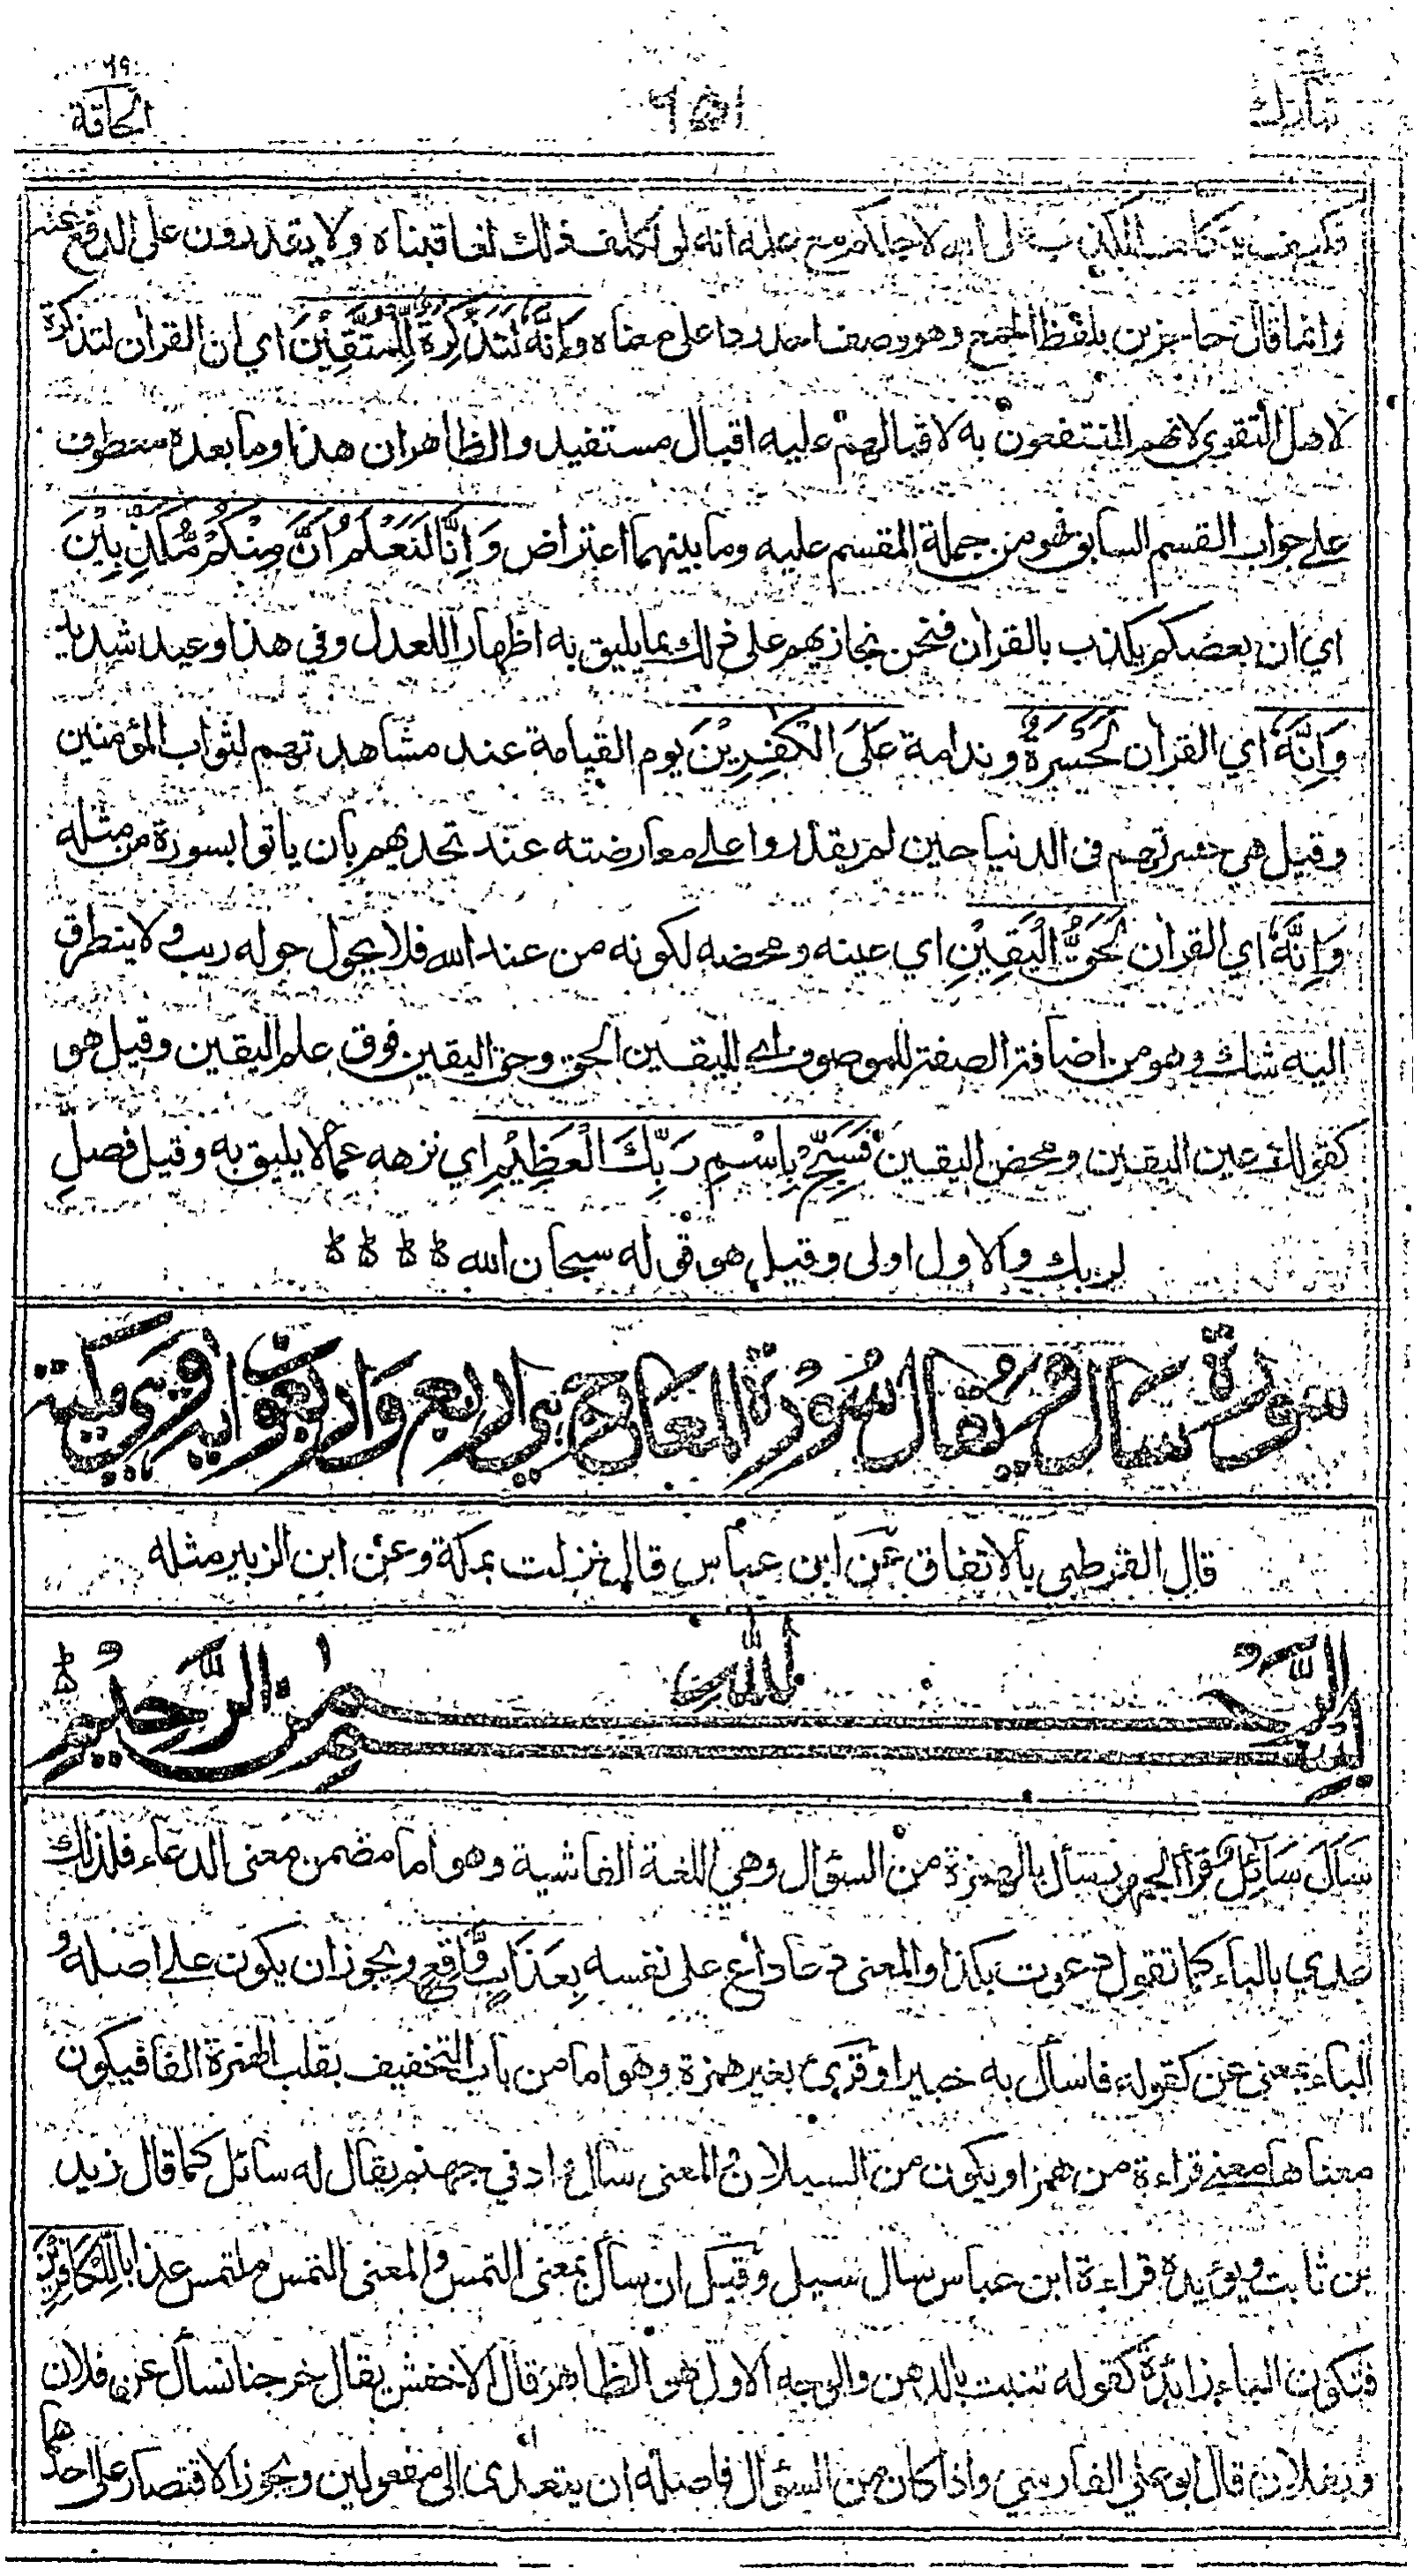 تبارك ٩٥١ الحاقة ٦٩
لاجلكم مع علمه انه لو تكلف ذلك لعاقبناه ولا يقدرون على الدفع عنه
وانما قال حاجزين بلفظ الجمع وهو وصف لاحد ردا على معناه وَإِنَّهُ لَتَذْكِرَةٌ لِّلْمُتَّقِيْنَ اي ان القران لتذكرة
لاهل التقوى لانهم المنتفعون به لاقبالهم عليه اقبال مستفيد والظاهر ان هذا وما بعده معطوف
على جواب القسم السابق فهو من جملة المقسم عليه وما بينهما اعتراض وَإِنَّا لَنَعْلَمُ اَنَّ مِنْكُمْ مُّكَذِّبِيْنَ
اي ان بعضكم يكذب بالقران فنحن نجازيهم على ذلك بما يليق به اظهارا للعدل وفي هذا وعيد شديد
وَإِنَّهُ اي القران لَحَسْرَةٌ وندامة عَلَى الْكٰفِرِيْنَ يوم القيامة عند مشاهدتهم لثواب المؤمنين
وقيل هي حسرتهم في الدنيا حين لم يقدروا على معارضته عند تحديهم بان ياتوا بسورة من مثله
وَإِنَّهُ اي القران لَحَقُّ الْيَقِيْنِ اي عينه ومحضه لكونه من عند الله فلا يحول حوله ريب ولا يتطرق
اليه شك وهو من اضافة الصفة للموصوف اي لليقين الحق وحق اليقين فوق علم اليقين وقيل هو
كقولك عين اليقين ومحض اليقين فَسَبِّحْ بِاسْمِ رَبِّكَ الْعَظِيْمِ اي نزهه عما لا يليق به وقيل فصل
لربك والاول اولى وقيل هو قوله سبحان الله
سورة سأل ويقال سورة المعارج هي اربع واربعون اية وهي مكية
قال القرطبي بالاتفاق عن ابن عباس قال نزلت بمكة وعن ابن الزبير مثله
بسم الله الرحمن الرحيم
سَأَلَ سَآئِلٌ قرأ الجمهور سأل بالهمزة من السؤال وهي اللغة الفاشية وهو اما مضمن معنى الدعاء فلذلك
عدي بالباء كما تقول دعوت بكذا والمعنى دعا داع على نفسه بِعَذَابٍ وَّاقِعٍ ويجوز ان يكون على اصله و
الباء بمعنى عن كقوله فاسأل به خبيرا وقرئ بغير همزة وهو اما من باب التخفيف بقلب الهمزة الفا فيكون
معناها معنى قراءة من همز او يكون من السيلان والمعنى سال واد في جهنم يقال له سائل كما قال زيد
بن ثابت ويؤيده قراءة ابن عباس سال سيل وقيل ان سأل بمعنى التمس والمعنى التمس ملتمس عذابا لِلْكَافِرِيْنَ
فتكون الباء زائدة كقوله تنبت بالدهن والوجه الاول هو الظاهر قال الاخفش يقال خرجنا نسأل عن فلان
وبفلان قال ابو علي الفارسي واذا كان من السؤال فاصله ان يتعدى الى مفعولين ويجوز الاقتصار على احدهما